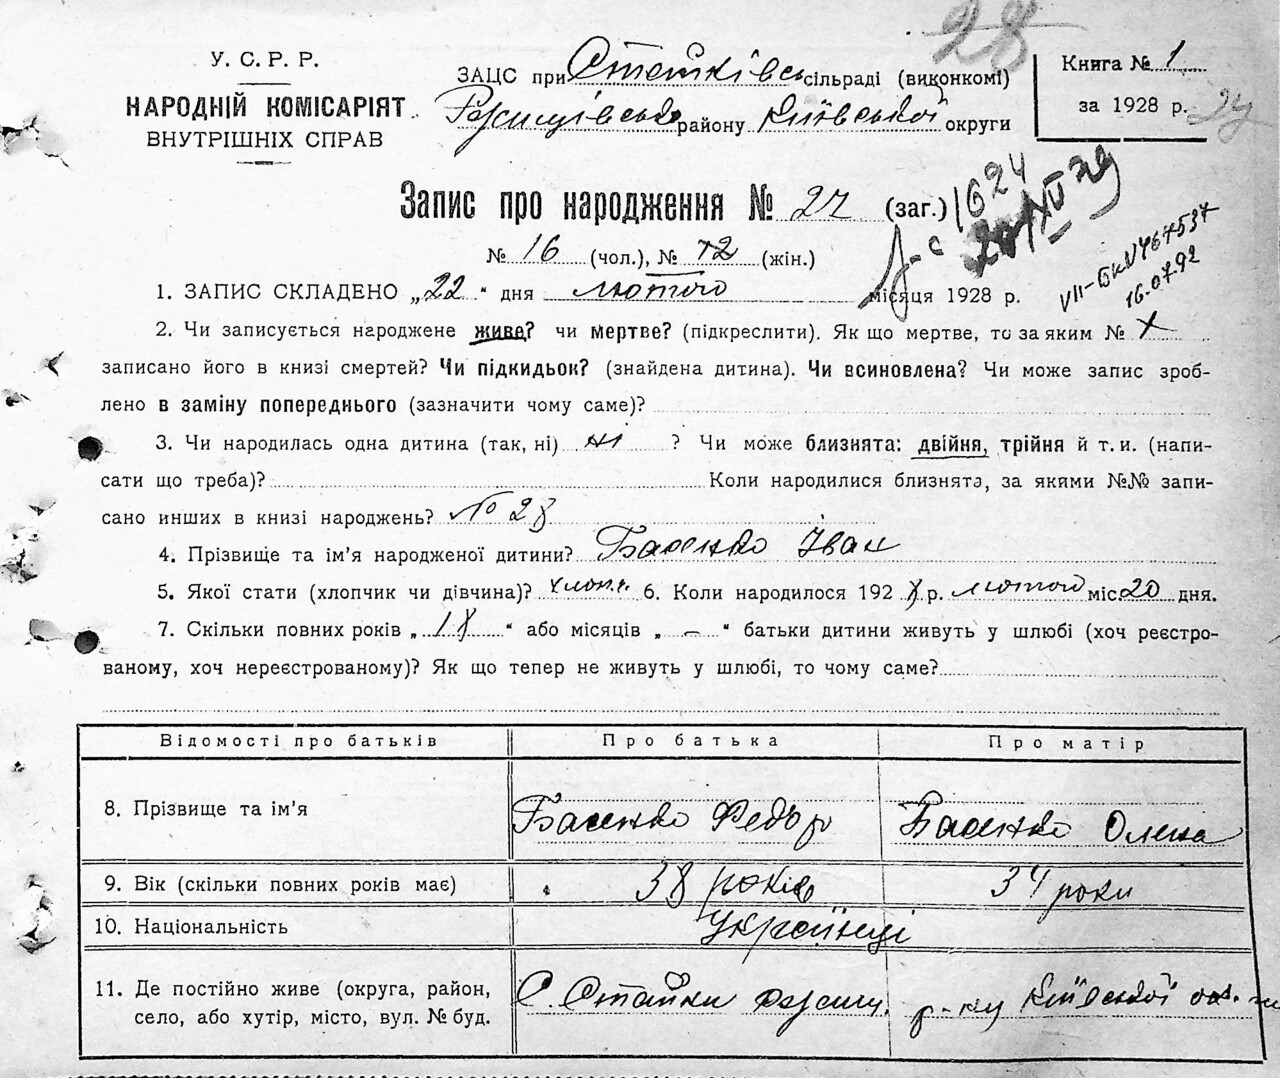 28
У. С. Р. Р.
НАРОДНІЙ КОМІСАРІЯТ
ВНУТРІШНІХ СПРАВ
ЗАЦС при сільраді (виконкомі)
району Київської округи
Книга № 1
за 1928 р.
Запис про народження № 27 (заг.)
1624
№ 16 (чол.), № 12 (жін.)
VII-БК № 467537
16.07.92
1. ЗАПИС СКЛАДЕНО „22“ дня лютого місяця 1928 р.
2. Чи записується народжене живе? чи мертве? (підкреслити). Як що мертве, то за яким № х
записано його в книзі смертей? Чи підкидьок? (знайдена дитина). Чи всиновлена? Чи може запис зроб-
лено в заміну попереднього (зазначити чому саме)?
3. Чи народилась одна дитина (так, ні) ні ? Чи може близнята: двійня, трійня й т. и. (напи-
сати що треба)? Коли народилися близнята, за якими №№ запи-
сано инших в книзі народжень? № 28
4. Прізвище та ім’я народженої дитини? Басенко Іван
5. Якої стати (хлопчик чи дівчина)? хлопч. 6. Коли народилося 1928 р. лютого міс. 20 дня.
7. Скільки повних років „18“ або місяців „-“ батьки дитини живуть у шлюбі (хоч реєстро-
ваному, хоч нереєстрованому)? Як що тепер не живуть у шлюбі, то чому саме?
Відомості про батьків Про батька Про матір
8. Прізвище та ім’я Басенко Федір Басенко Олена
9. Вік (скільки повних років має) 38 років 34 роки
10. Національність Українці
11. Де постійно живе (округа, район,
село, або хутір, місто, вул. № буд.
С. Стайки Ржищ. р-ну Київської ок.